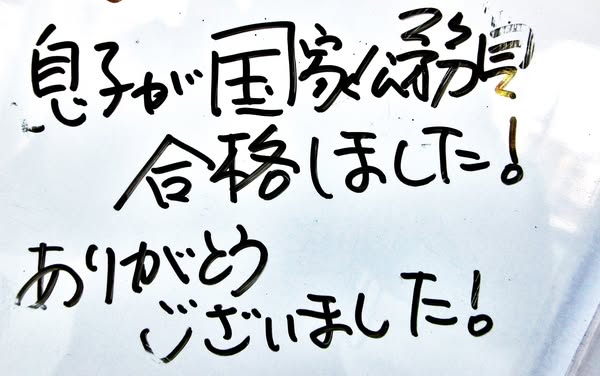 息子が国家公務員
合格しました!
ありがとう
ございました!